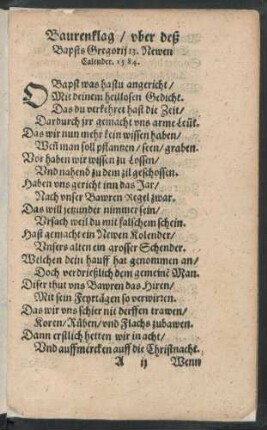 Baurenklag / vber deß
Bapsts Gregorij 13. Newen
Calender. 1584.
O Bapst was hastu angericht /
Mit deinem heillosen Gedicht.
Das du verkehret hast die Zeit /
Dardurch jrr gemacht vns arme Leut.
Das wir nun mehr kein wissen haben /
Weñ man soll pflantzen / seen / graben.
Vor haben wir wissen zu Lossen /
Vnd nahend zu dem zil geschossen.
Haben vns gericht inn das Jar /
Nach vnser Bawren Regel zwar.
Das will jetzunder nimmer sein /
Vrsach weil du mit falschem schein.
Hast gemacht ein Newen Kolender /
Vnsers alten ein grosser Schender.
Welchen dein hauff hat genommen an /
Doch verdrießlich dem gemeinē Man.
Diser thut vns Bawren das Hiren /
Mit sein Feyrtägen so verwirten.
Das wir vns schier nit derffen trawen /
Koren / Rüben / vnd Flachs zubawen.
Dann erstlich hetten wir in acht /
Vnd auffmercken auff die Christnacht.
A ij Wenn